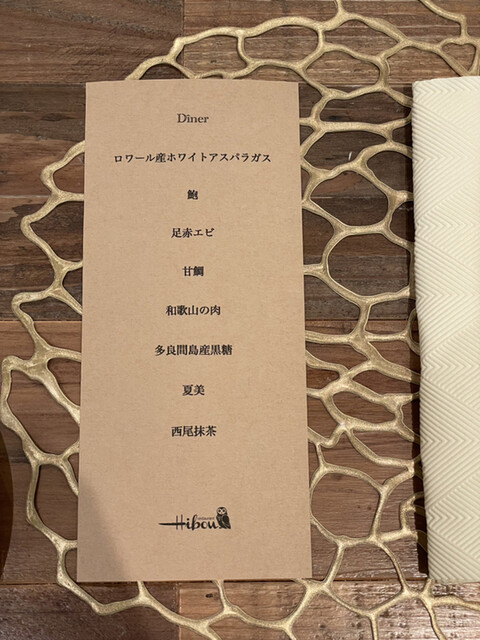 Dîner
ロワール産ホワイトアスパラガス
鮑
足赤エビ
甘鯛
和歌山の肉
多良間島産黒糖
夏美
西尾抹茶
Hibou